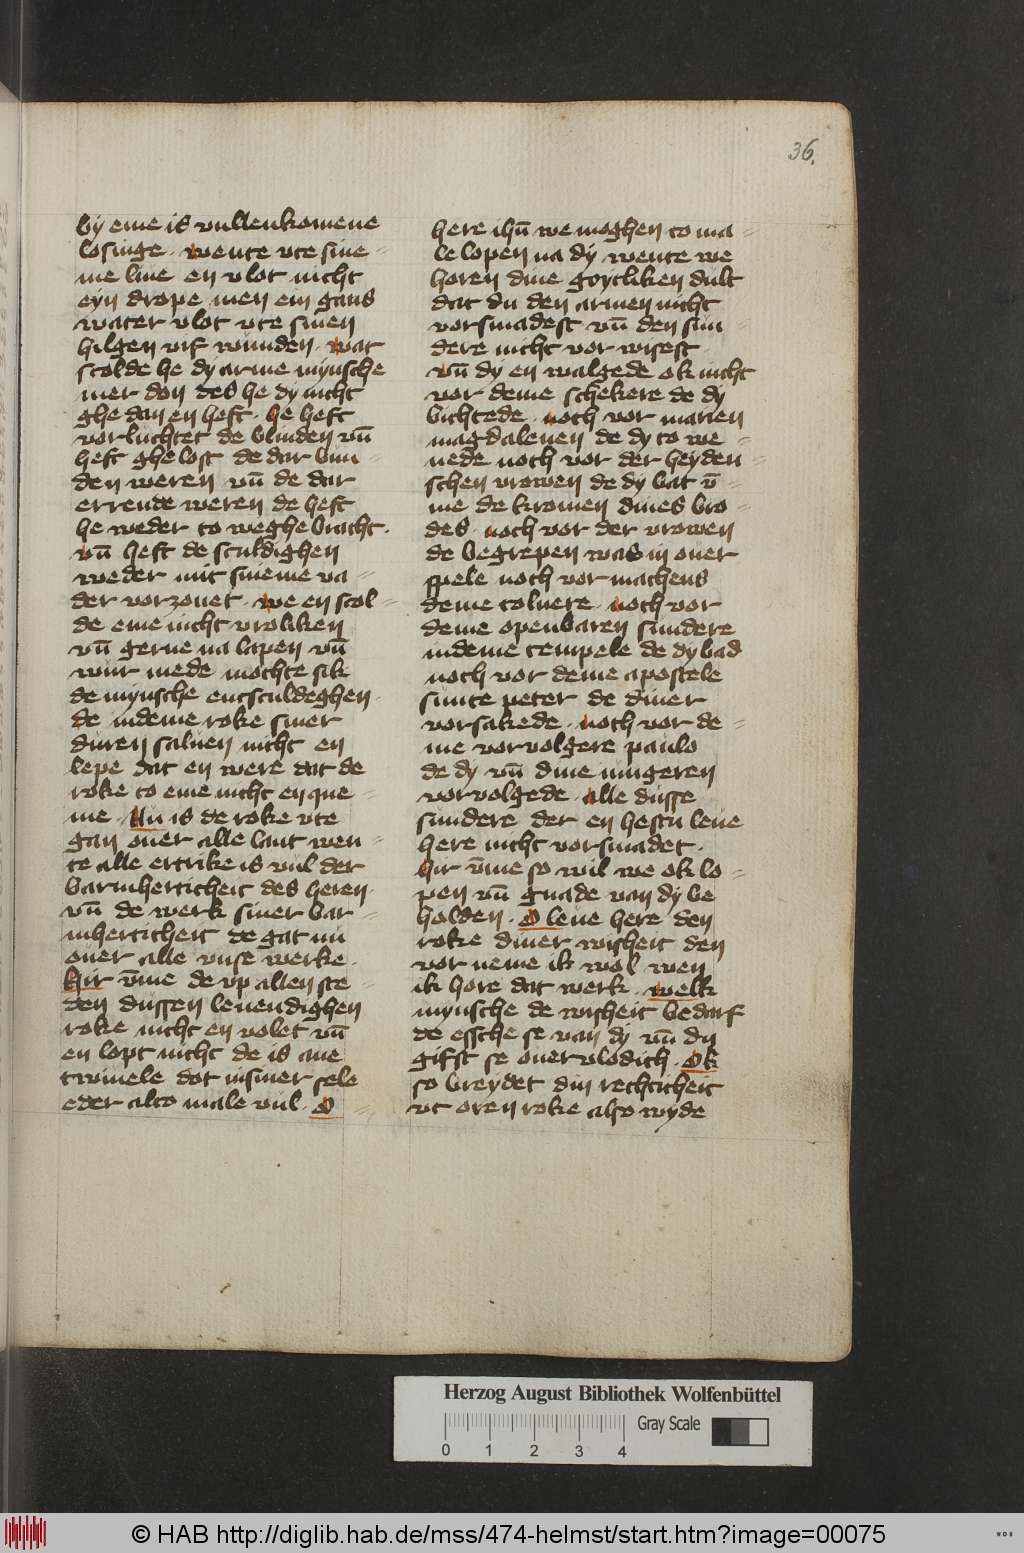 36.
by eme is vullenkomene
losinge · wente vte sine =
me liue en vlot nicht
eyn drope men ein gans
water vlot vte sinen
hilgen vif wunden · wat
scolde he dy arme mynsche
mer don des he dy nicht
ghe dan en heft · he heft
vorluchtet de blinden vn̄
heft ghelost de dar bun =
den weren vn̄ de dar
errende weren de heft
he weder to weghe bracht ·
vn̄ heft de sculdighen
weder mit sineme va =
der vorzonet · we en scol =
de eme nicht vroliken
vn̄ gerne na lapen vn̄
wur mede mochte sik
de mynsche entsculdeghen ·
de indeme roke siner
duren saluen nicht en
lepe dat en were dat de
roke to eme nicht en que =
me · Nu is de roke vte
gan ouer alle lant wen =
te alle ertrike is vul der
barmherticheit des heren ·
vn̄ de werk siner bar =
mherticheit de gat nu
ouer alle vnse werke ·
hir v̄me de vp allen ste =
den dussen leuendighen
roke nicht en volet vn̄
en lopt nicht de is ane
twiuele dot in siner sele
eder alto male vul · O =
here ihū we moghen to ma =
le lopen na dy wente we
horen dine gotliken dult
dat du den armen nicht
vorsmadest vn̄ den sun =
dere nicht vor wisest ·
vn̄ dy en walgede ok nicht
vor deme schekere de dy
bichtede · noch vor marien
magdalenen de dy to we =
nede noch vor der heyden =
schen vrowen de dy bat v̄ =
me de kromen dines bro =
des · noch vor der vrowen
de begrepen was in ouer
spele noch vor matheus
deme tolnere · noch vor
deme openbaren sundere
indeme tempele de dy bad
noch vor deme apostele
sunte peter de diner
vorsakede · noch vor de =
me vorvolgere paulo
de dy vn̄ dine iungeren
vorvolgede · alle dusse
sundere der en hestu leue
here nicht vorsmadet ·
hir v̄me so wil we ok lo =
pen vn̄ gnade van dy be
holden · O leue here den
roke diner wisheit den
vor neme ik wol wen
ik hore dat werk · welk
mynsche de wisheit bedarf
de essche se van dy vn̄ du
gifst se ouervlodich · Ok
so breydet din rechticheit
vt oren roke also wyde
Herzog August Bibliothek Wolfenbüttel
Gray Scale
0 1 2 3 4
© HAB http://diglib.hab.de/mss/474-helmst/start.htm?image=00075